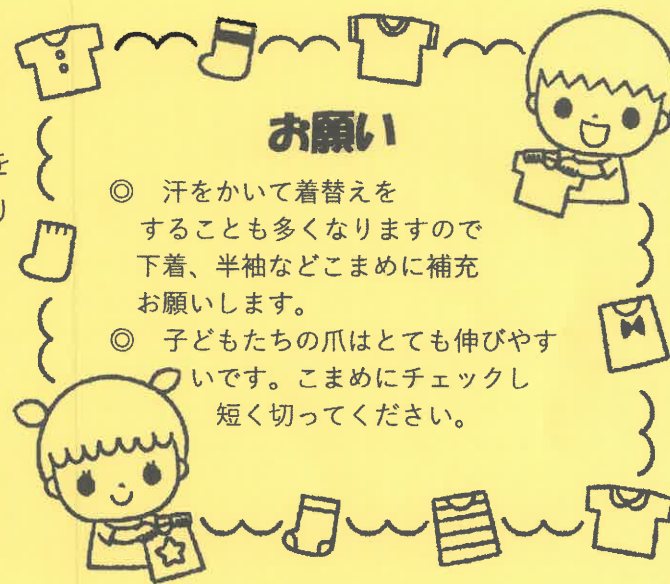 お願い
◎ 汗をかいて着替えを
することも多くなりますので
下着、半袖などこまめに補充
お願いします。
◎ 子どもたちの爪はとても伸びやす
いです。こまめにチェックし
短く切ってください。
を
り